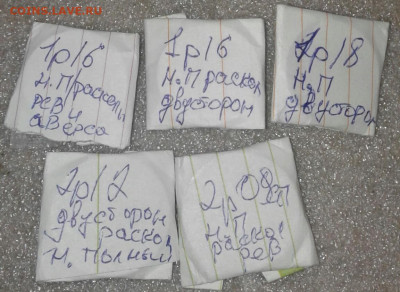 1р16
Н.П расколы
рев и
аверса
1р16
Н.П раскол
двусторон
1р18
Н.П
двусторон
2р12
двусторон
раскол
Н. Полный
2р08
Н.П
раскол
рев